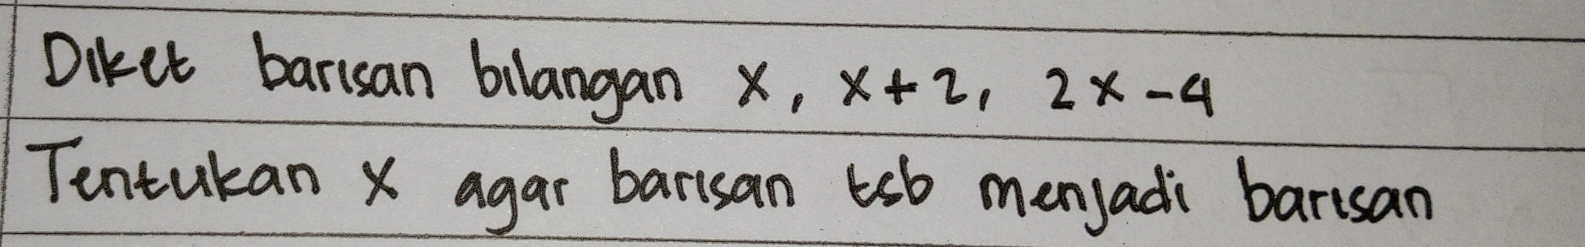 Diket barisan bilangan x, x+2, 2x-4
Tentukan x agar barisan tsb menjadi barisan